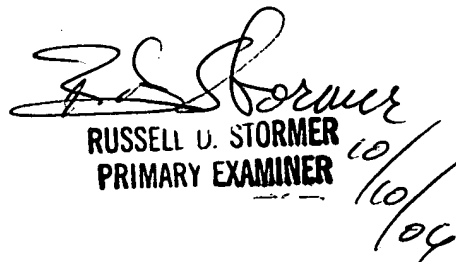 R. D. Stormer
RUSSELL D. STORMER
PRIMARY EXAMINER
10/10/06